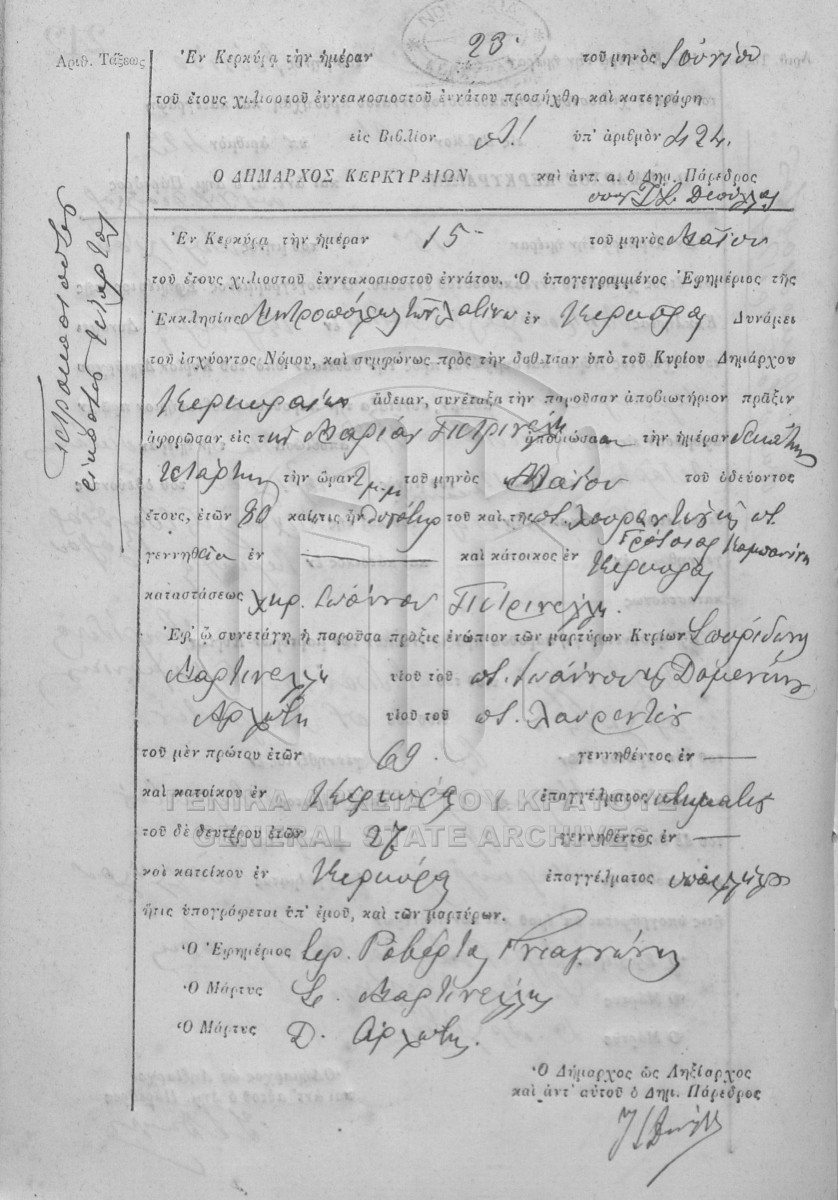 Ἀριθ. Τάξεως
Ἐν Κερκύρᾳ τὴν ἡμέραν 23 τοῦ μηνὸς Ἰουνίου
τοῦ ἔτους χιλιοστοῦ ἐννεακοσιοστοῦ ἐννάτου προσήχθη καὶ κατεγράφη
εἰς Βιβλίον ὑπ' ἀριθμὸν 424.
Ο ΔΗΜΑΡΧΟΣ ΚΕΡΚΥΡΑΙΩΝ καὶ ἀντ. α. ὁ Δημ. Πάρεδρος
τετρακοσιοστὸς
εἰκοστὸς τέταρτος
Ἐν Κερκύρᾳ τὴν ἡμέραν 15 τοῦ μηνὸς Μαΐου
τοῦ ἔτους χιλιοστοῦ ἐννεακοσιοστοῦ ἐννάτου. Ὁ ὑπογεγραμμένος Ἐφημέριος τῆς
Ἐκκλησίας Μητροπόλεως τῶν Λατίνων ἐν Κερκύρᾳ Δυνάμει
τοῦ ἰσχύοντος Νόμου, καὶ συμφώνως πρὸς τὴν δοθεῖσαν ὑπὸ τοῦ Κυρίου Δημάρχου
Κερκυραίων ἄδειαν, συνέταξα τὴν παροῦσαν ἀποβιωτήριον πρᾶξιν
ἀφορῶσαν εἰς τὴν Μαρίαν Πετρινέλη ἀποβιώσασαν τὴν ἡμέραν δεκάτην
τετάρτην τὴν ὥραν 2 μ.μ. τοῦ μηνὸς Μαΐου τοῦ ὁδεύοντος
ἔτους, ἐτῶν 80 καὶ τις ἦν θυγάτηρ τοῦ καὶ τῆς
γεννηθεῖσα ἐν — καὶ κάτοικος ἐν Κερκύρᾳ
καταστάσεως χηρ. Ἰωάννου Πετρινέλλη.
Ἐφ' ᾧ συνετάγη ἡ παροῦσα πρᾶξις ἐνώπιον τῶν μαρτύρων Κυρίων Σπυρίδων
Μαρτινέλλη υἱοῦ τοῦ ποτ. Ἰωάννου καὶ Δομενίκου
Ἀρχότη υἱοῦ τοῦ ποτ. Λαυρεντίου
τοῦ μὲν πρώτου ἐτῶν 69 γεννηθέντος ἐν —
καὶ κατοίκου ἐν Κερκύρᾳ ἐπαγγέλματος κτηματίας
τοῦ δὲ δευτέρου ἐτῶν 27 γεννηθέντος ἐν —
καὶ κατοίκου ἐν Κερκύρᾳ ἐπαγγέλματος ὑπάλληλος
ἥτις ὑπογράφεται ὑπ' ἐμοῦ, καὶ τῶν μαρτύρων.
Ὁ Ἐφημέριος ἱερ. Ροβέρτος
Ὁ Μάρτυς Σ. Μαρτινέλλης
Ὁ Μάρτυς Δ. Ἀρχότης.
Ὁ Δήμαρχος ὡς Ληξίαρχος
καὶ ἀντ' αὐτοῦ ὁ Δημ. Πάρεδρος
ΓΕΝΙΚΑ ΑΡΧΕΙΑ ΤΟΥ ΚΡΑΤΟΥΣ
GENERAL STATE ARCHIVES